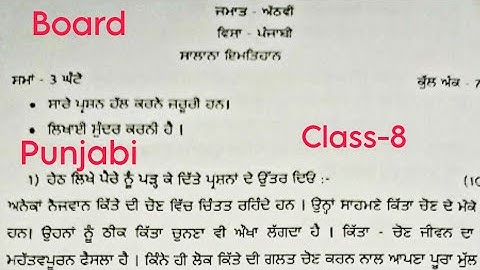 Board
ਜਮਾਤ - ਅੱਠਵੀਂ
ਵਿਸ਼ਾ - ਪੰਜਾਬੀ
ਸਾਲਾਨਾ ਇਮਤਿਹਾਨ
ਸਮਾਂ - 3 ਘੰਟੇ ਕੁੱਲ ਅੰਕ - 7
• ਸਾਰੇ ਪ੍ਰਸ਼ਨ ਹੱਲ ਕਰਨੇ ਜ਼ਰੂਰੀ ਹਨ।
• ਲਿਖਾਈ ਸੁੰਦਰ ਕਰਨੀ ਹੈ ।
Class-8
Punjabi
1) ਹੇਠ ਲਿਖੇ ਪੈਰੇ ਨੂੰ ਪੜ੍ਹ ਕੇ ਦਿੱਤੇ ਪ੍ਰਸ਼ਨਾਂ ਦੇ ਉੱਤਰ ਦਿਓ :- (10
ਅਨੇਕਾਂ ਨੌਜਵਾਨ ਕਿੱਤੇ ਦੀ ਚੋਣ ਵਿੱਚ ਚਿੰਤਤ ਰਹਿੰਦੇ ਹਨ । ਉਨ੍ਹਾਂ ਸਾਹਮਣੇ ਕਿੱਤਾ ਚੋਣ ਦੇ ਮੌਕੇ
ਹਨ। ਉਹਨਾਂ ਨੂੰ ਠੀਕ ਕਿੱਤਾ ਚੁਨਣਾ ਵੀ ਔਖਾ ਲੱਗਦਾ ਹੈ । ਕਿੱਤਾ - ਚੋਣ ਜੀਵਨ ਦਾ
ਮਹੱਤਵਪੂਰਨ ਫੈਸਲਾ ਹੈ । ਕਿੰਨੇ ਹੀ ਲੋਕ ਕਿੱਤੇ ਦੀ ਗਲਤ ਚੋਣ ਕਰਨ ਨਾਲ ਆਪਣਾ ਪੂਰਾ ਮੁੱਲ